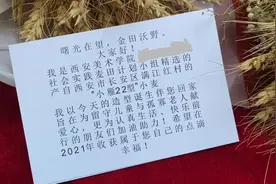 曙光在望，金田沃野。
大家好！
我是西安美术学院
社会实践麦田计划小组精选的
产自西安市长安区满江红村的
“小雁22型”小麦
我以今天的造型诞生您回家
旨在为留守儿童与孤寡老人献
爱心，更为认真生活、快乐前
行的朋友们加油助力！希望在
2021年收获属于您自己的点滴
幸福！